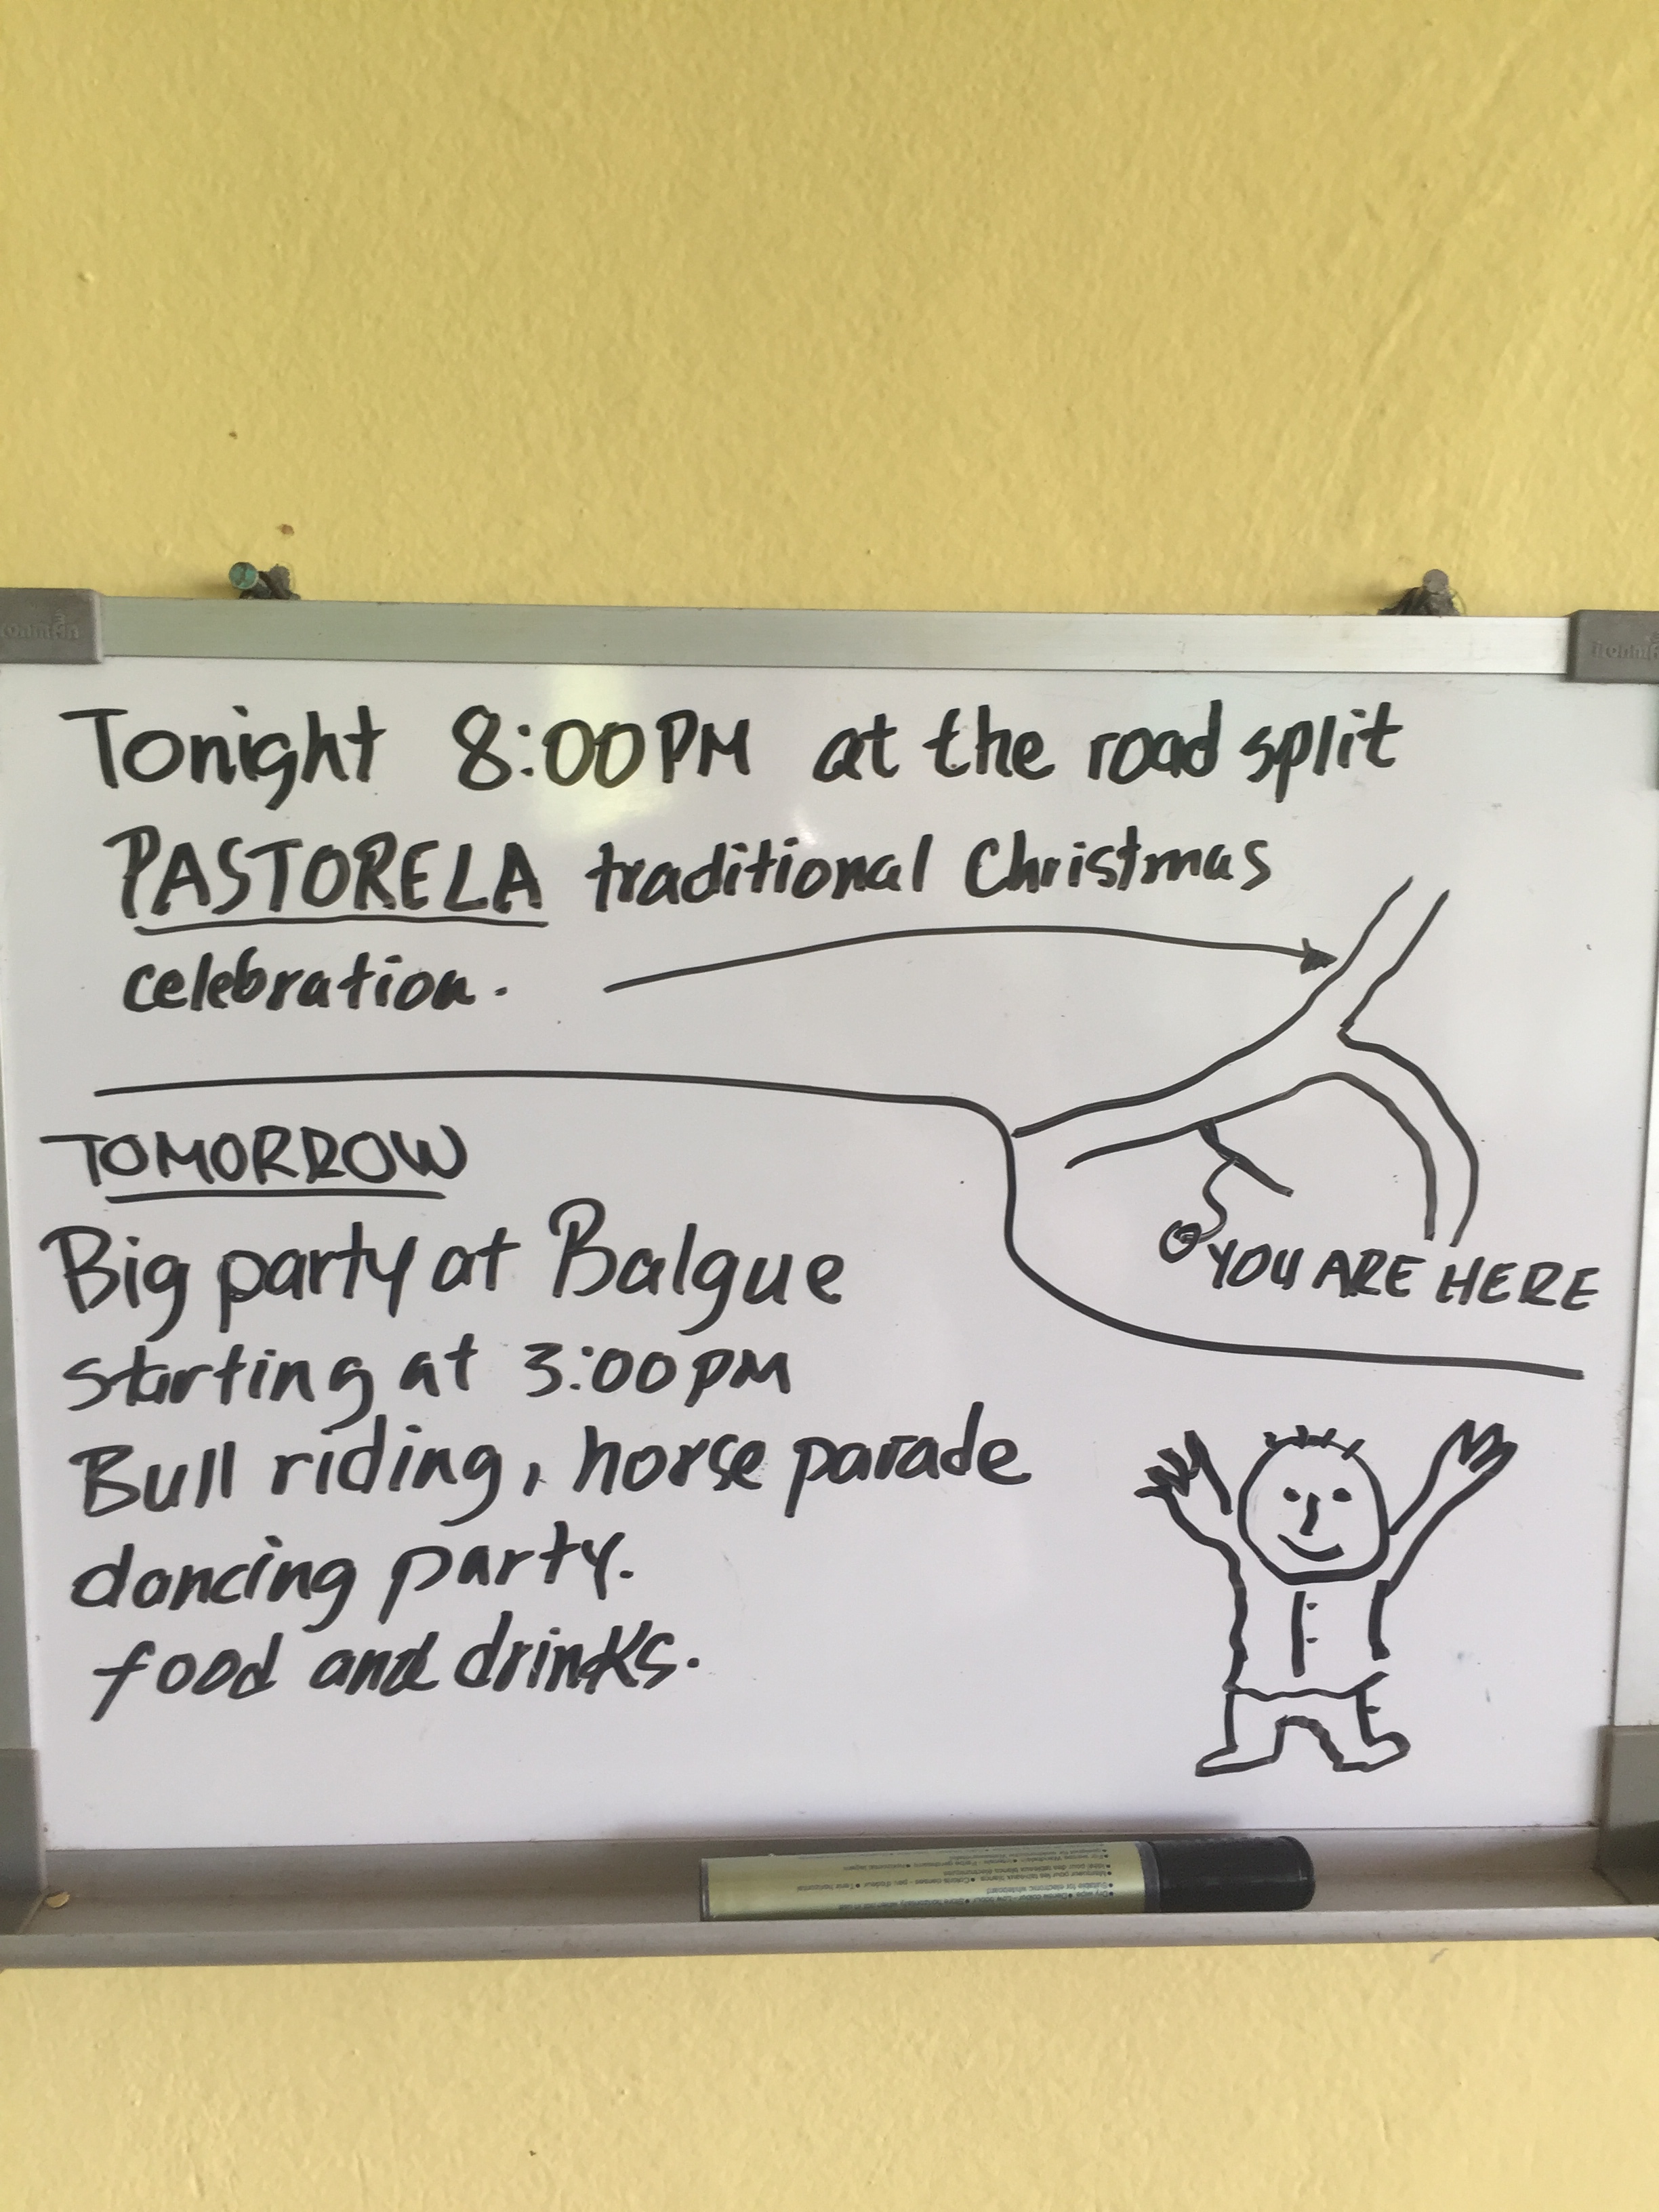 Tonight 8:00PM at the road split
PASTORELA traditional Christmas
celebration.
YOU ARE HERE
TOMORROW
Big party at Balgue
starting at 3:00PM
Bull riding, horse parade
dancing party.
food and drinks.